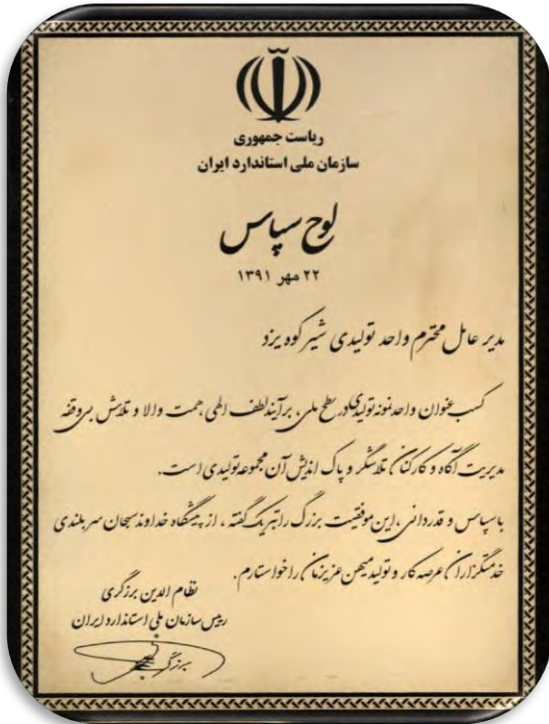 ریاست جمهوری
سازمان ملی استاندارد ایران
لوح سپاس
۲۲ مهر ۱۳۹۱
مدیر عامل محترم واحد تولیدی شیرکوه یزد
کسب عنوان واحد نمونه تولیدی در سطح ملی، برآیند لطف الهی، همت والا و تلاش بی وقفه
مدیریت آگاه و کارکنان تلاشگر و پاک اندیش آن مجموعه تولیدی است.
با سپاس و قدردانی، این موفقیت بزرگ را تبریک گفته، از پیشگاه خداوند سبحان سربلندی
خدمتگزاران عرصه کار و تولید میهن عزیزمان را خواستارم.
نظام الدین برزگری
رییس سازمان ملی استاندارد ایران